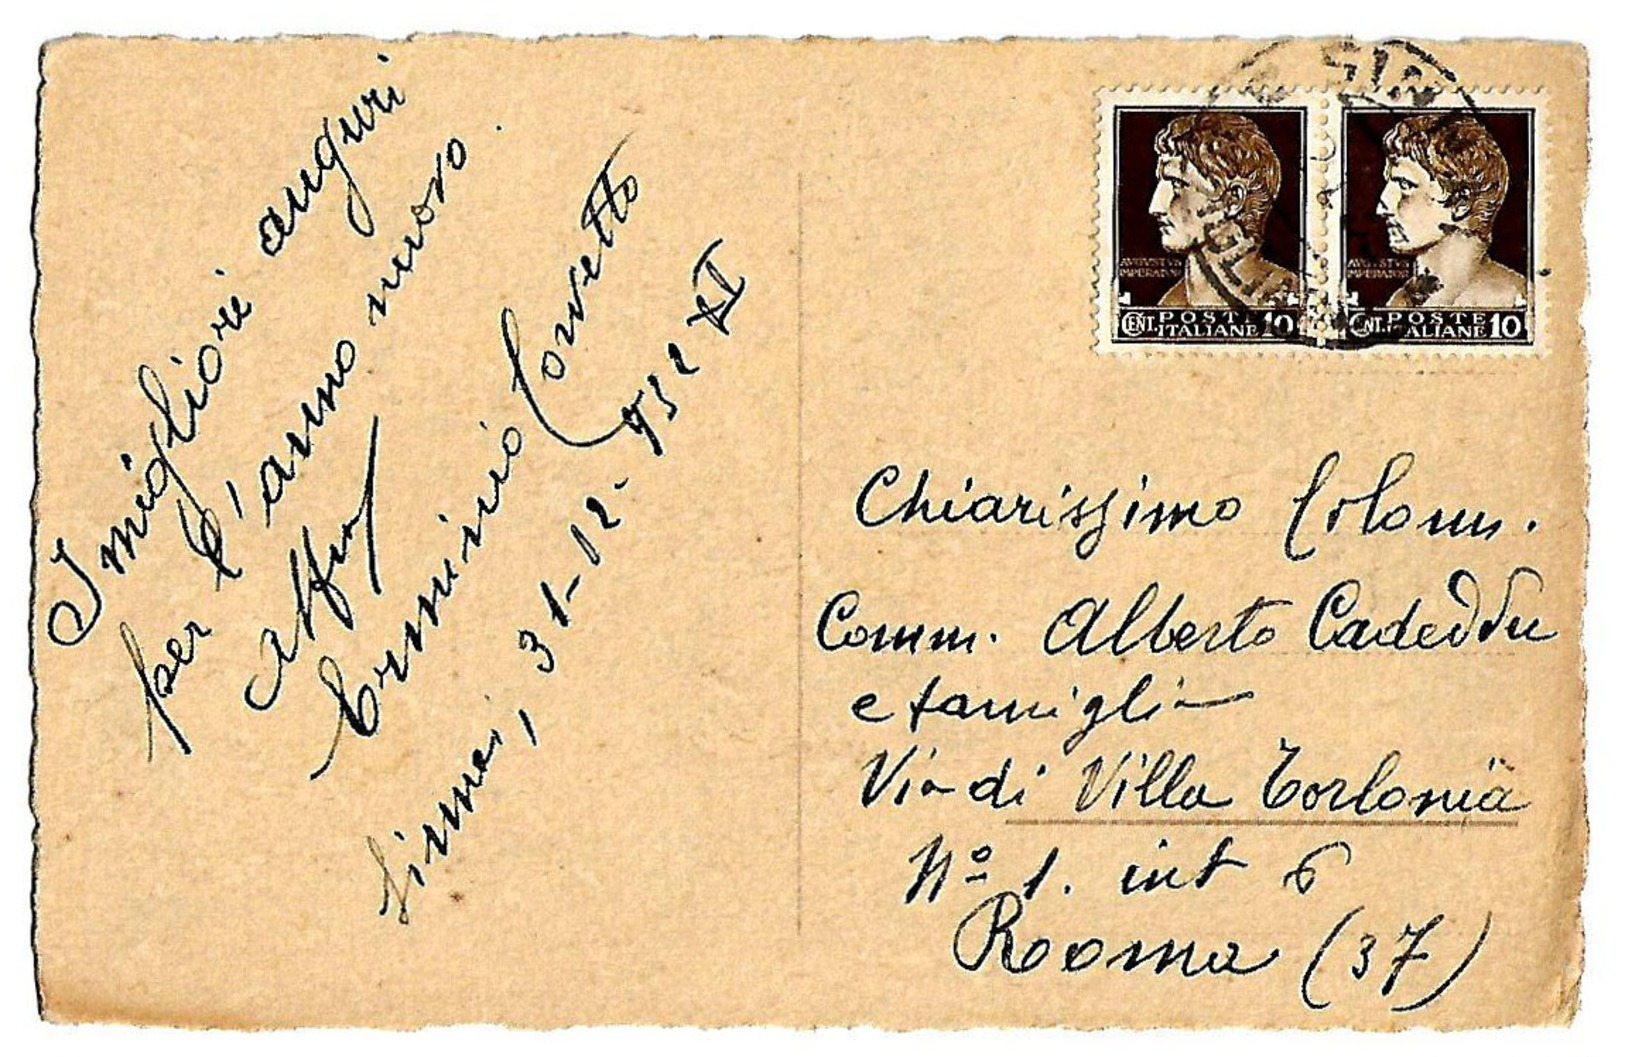 I migliori auguri
per l'anno nuovo.
aff
Erminio Lovetto
Sinnai, 31-12-932 XI
AVGVSTVS
IMPERATOR
CENT. POSTE
ITALIANE 10
AVGVSTVS
IMPERATOR
CENT. POSTE
ITALIANE 10
Chiarissimo Colonn.
Comm. Alberto Cadeddu
e famiglia
Via di Villa Torlonia
Nº 1. int 6
Roma (37)